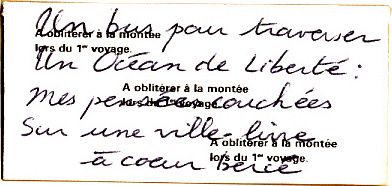 Un bus pour traverser
A oblitérer à la montée
lors du 1er voyage.
Un Océan de Liberté :
A oblitérer à la montée
lors du 1er voyage.
mes pensées couchées
Sur une ville-livre
A oblitérer à la montée
lors du 1er voyage.
à coeur bercé